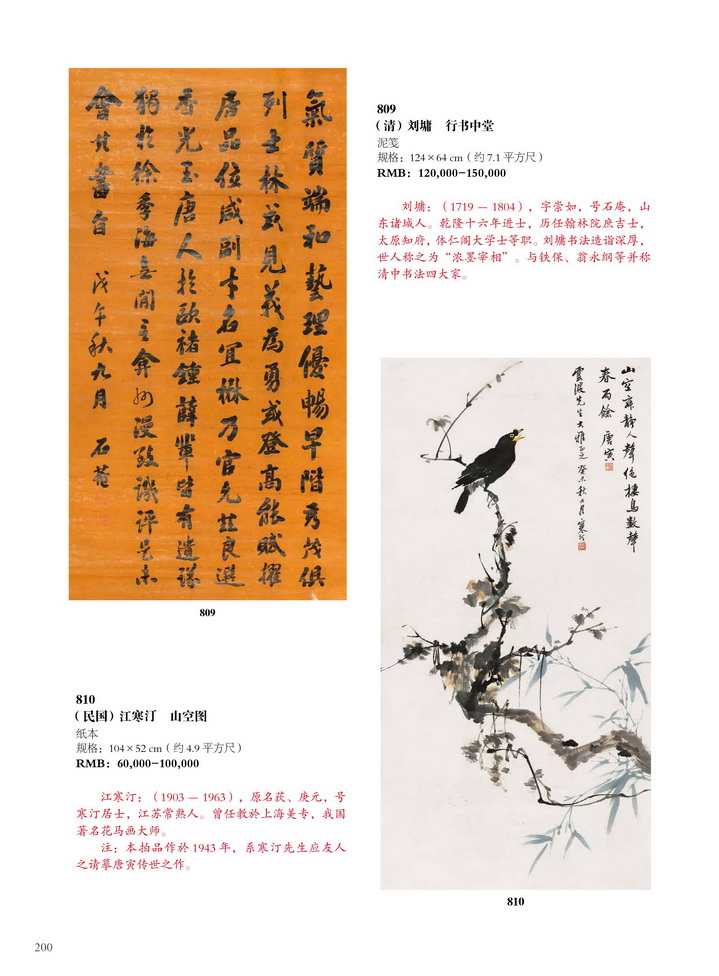 氣質端和藝理優暢早階秀茂俱
列士林或見義為勇或登高能賦擢
居品位咸副才名宜楙乃官允玆良選
香光至唐人於歐褚鍾薛輩皆有遺議
獨於徐季海無間言弇州漫致譏評是未
會其書旨 戊午秋九月 石菴
809
809
（清）刘墉 行书中堂
泥笺
规格：124×64 cm（约 7.1 平方尺）
RMB：120,000−150,000
刘墉：（1719 — 1804），字崇如，号石庵，山
东诸城人。乾隆十六年进士，历任翰林院庶吉士，
太原知府，体仁阁大学士等职。刘墉书法造诣深厚，
世人称之为“浓墨宰相”。与铁保、翁永纲等并称
清中书法四大家。
山空寂靜人聲绝棲鳥數聲
春雨餘 唐寅
雲波先生大雅正之 癸未秋八月寒汀
810
810
（民国）江寒汀 山空图
纸本
规格：104×52 cm（约 4.9 平方尺）
RMB：60,000−100,000
江寒汀：（1903 — 1963），原名荻、庚元，号
寒汀居士，江苏常熟人。曾任教於上海美专，我国
著名花马画大师。
注：本拍品作於 1943 年，系寒汀先生应友人
之请摹唐寅传世之作。
200